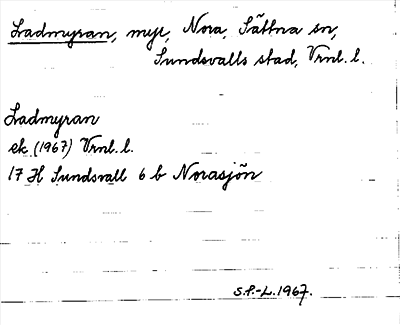 Ladmyran, myr, Nora, Sättna sn,
Sundsvalls stad, Vrnl. l.
Ladmyran
ek (1967) Vrnl. l.
17 H Sundsvall 6 b Norasjön
S.F.-L. 1967.